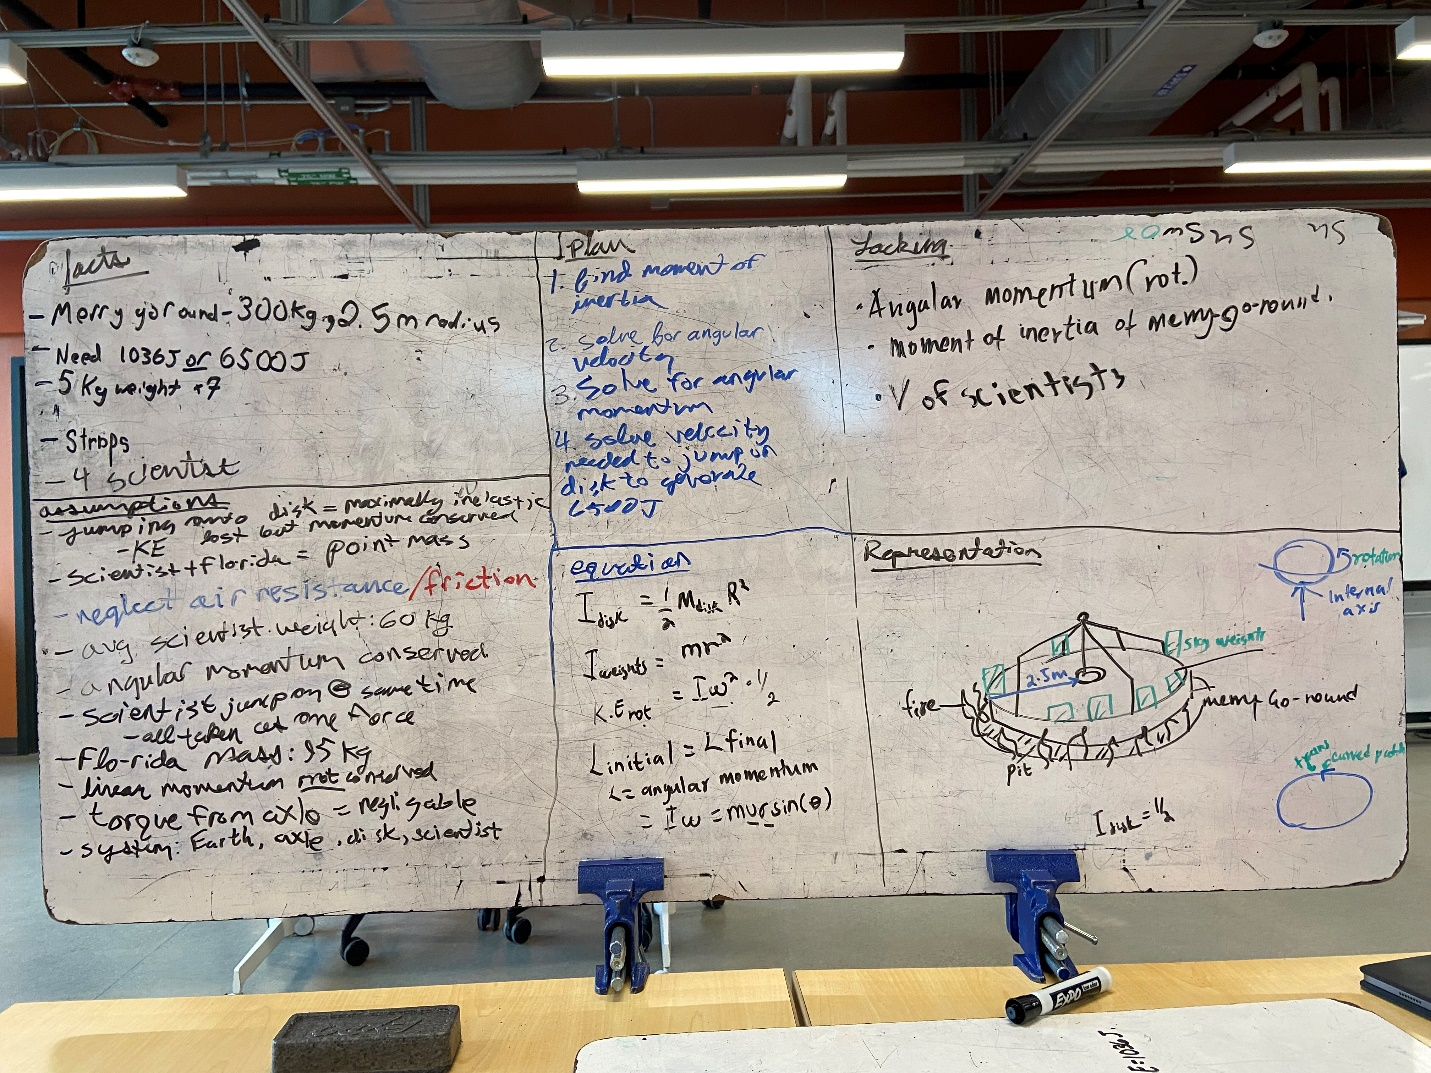 facts
- Merry go round - 300kg, 2.5m radius
- Need 1036J or 6500J
- 5 kg weight x7
- Straps
- 4 scientist
assumptions
- jumping onto disk = maximally inelastic
- KE lost but momentum conserved
- scientist + florida = point mass
- neglect air resistance/friction
- avg scientist weight: 60 kg
- angular momentum conserved
- scientist jump on @ same time
- all taken as one force
- Flo-rida mass: 95 kg
- linear momentum not conserved
- torque from axle = negligable
- system: Earth, axle, disk, scientist
plan
1. find moment of
inertia
2. solve for angular
velocity
3. Solve for angular
momentum
4. solve velocity
needed to jump on
disk to generate
6500J
equation
I disk = 1/2 M disk R²
I weights = mr²
K.E rot = Iω² · 1/2
L initial = L final
L = angular momentum
= Iω = mvrsin(θ)
Lacking
· Angular momentum (rot.)
· moment of inertia of merry-go-round.
· V of scientists
Representation
rotation
Internal
axis
5kg weights
2.5m
fire
merry Go-round
pit
curved path
I disk = 1/2
EXPO